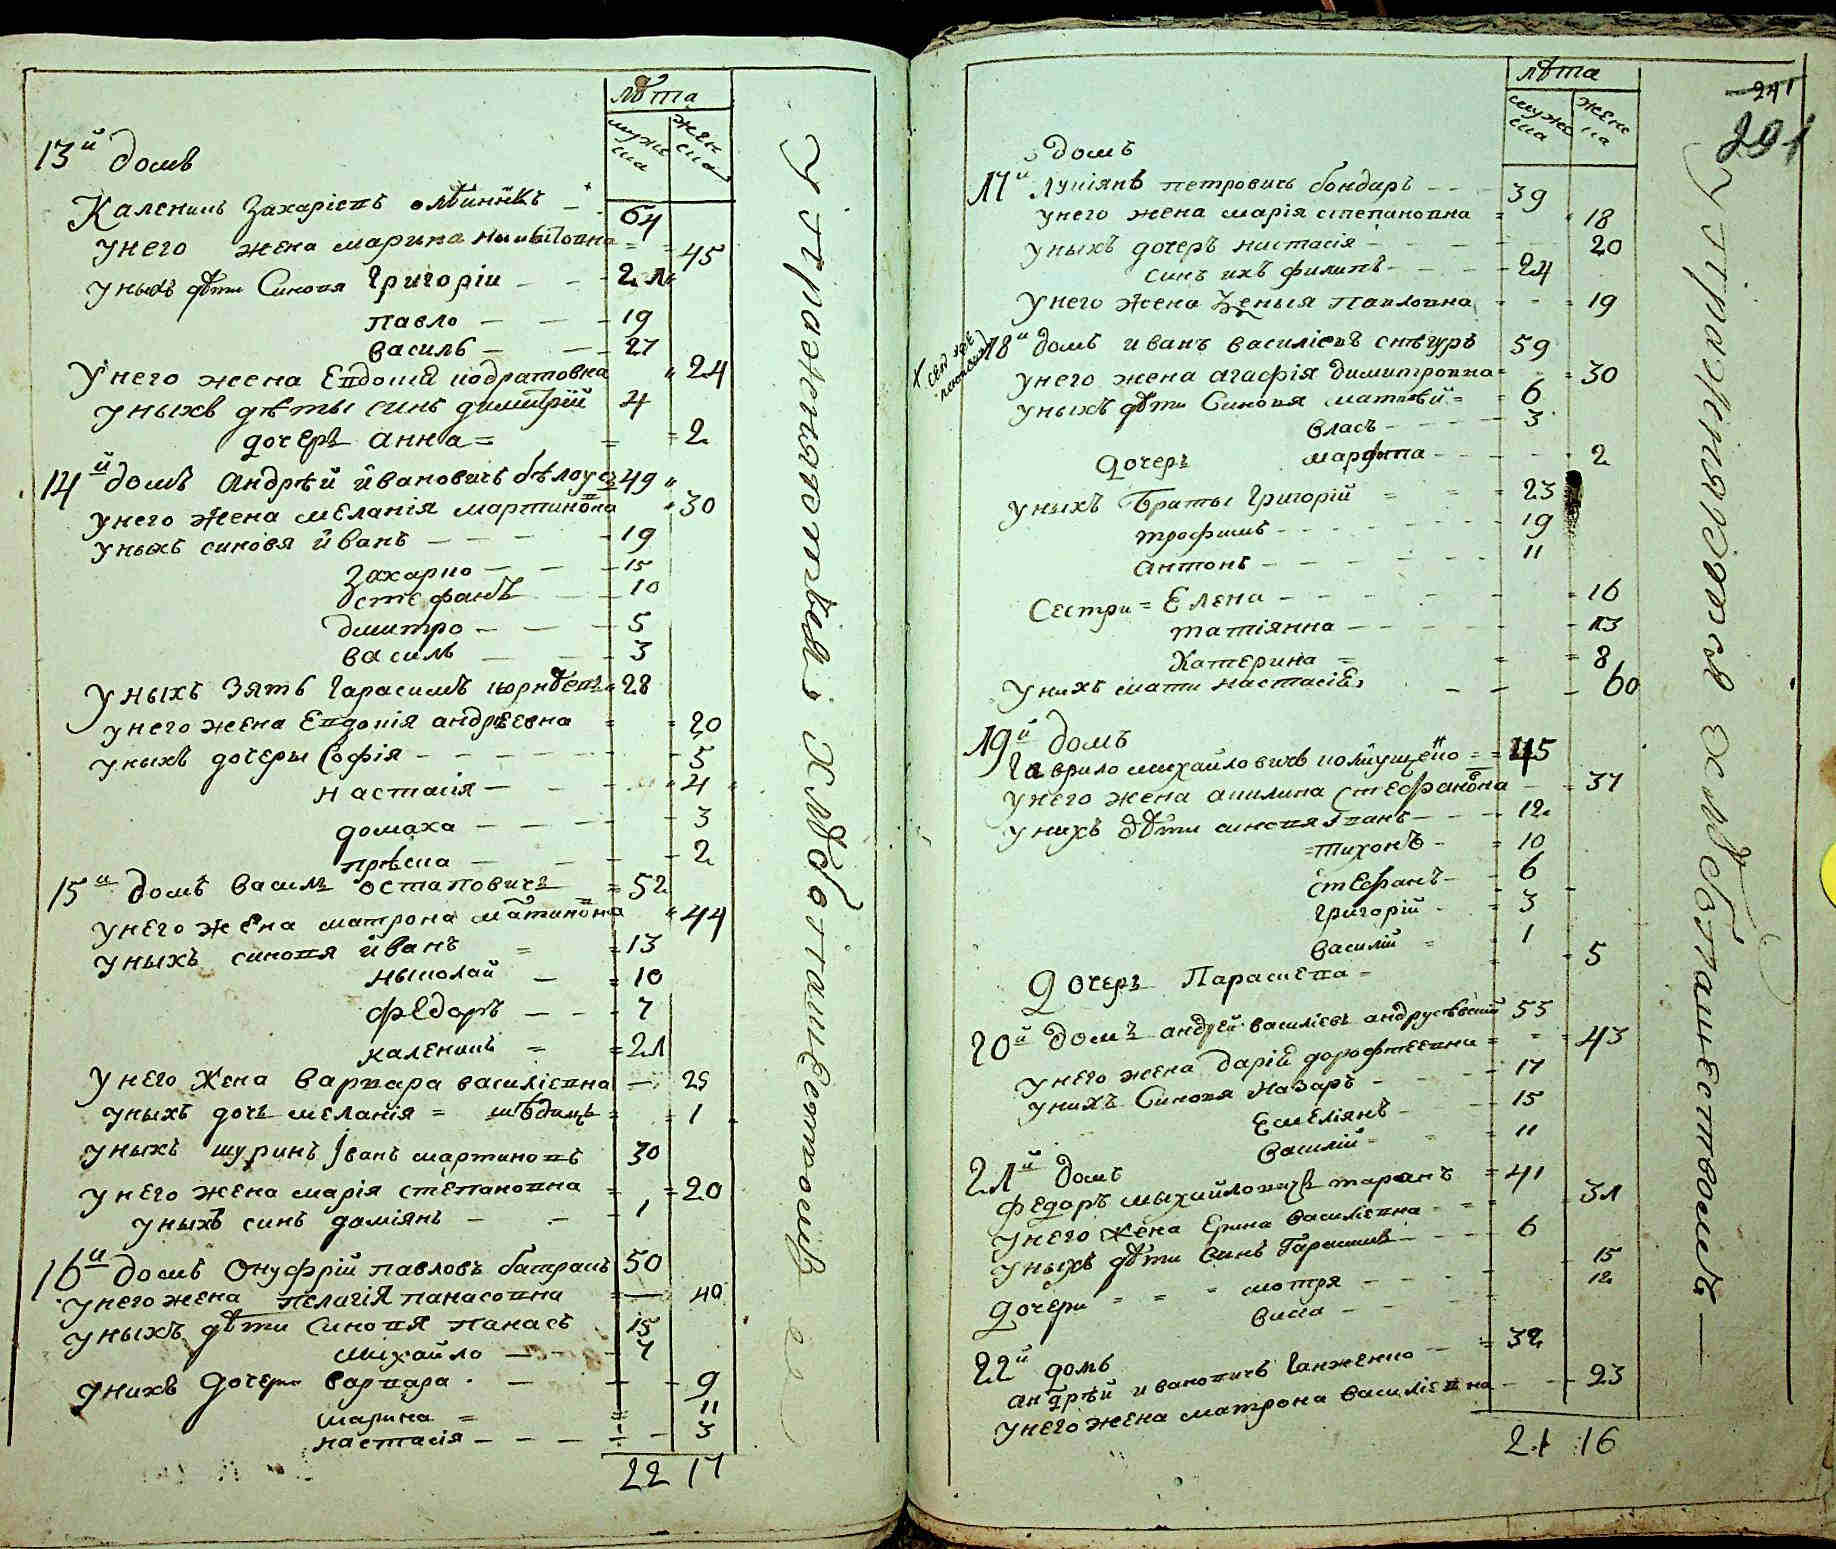 лѣта
муже
ска
жен
ска
13й домъ
Каленикъ Захаріевъ олѣйникъ 64
у него жена марина 45
у ныхъ дѣти Синовя Григорій 21
павло 19
василь 27
У него жена Евдокія кодратовна 24
у ныхъ дѣты синъ димитрій 4
дочеръ анна 2
14й домъ Андрѣй ивановичъ бѣлоусъ 49
у него жена меланія мартиновна 30
у ныхъ синовя иванъ 19
Захарко 15
стефанъ 10
дмитро 5
василь 3
У ныхъ зять Гарасимъ 28
у него жена Евдокія андрѣевна 20
у ныхъ дочеры Софія 5
настасія 4
домаха 3
прѣска 2
15й домъ Василь остаповичъ 52
у него жена матрона матиновна 44
у ныхъ синовя иванъ 13
николай 10
федоръ 7
каленикъ 21
У него жена Варвара василіевна 25
у ныхъ дочъ меланія 1
у ныхъ шуринъ Іванъ мартиновъ 30
у него жена марія степановна 20
у ныхъ синъ даміянъ 1
16й домъ Онуфрій павловъ батракъ 50
у него жена пелагія панасовна 40
у ныхъ дѣти Синовя панасъ 15
михайло 7
у нихъ дочери варвара 9
марина 11
настасія 3
22 17
упражняются хлѣбопашествомъ
лѣта
муже
ска
женс
ка
241
291
домъ
17й Лукіянъ петровичъ бондаръ 39
у него жена марія степановна 18
у ныхъ дочеръ настасія 20
синъ ихъ филипъ 24
У него жена Ксенія павловна 19
18й домъ иванъ василіевъ снѣгуръ 59
у него жена агафія димитровна 30
у ныхъ дѣти Синовя матвѣй 6
власъ 3
дочеръ марфа 2
у ныхъ браты Григорій 23
трофимъ 19
антонъ 11
Сестри Елена 16
татіянна 13
Катерина 8
у нихъ мати настасія 60
19й домъ
Гаврило михайловичъ 45
у него жена акилина Стефановна 37
у нихъ дѣти синовя іванъ 12
тихонъ 10
стефанъ 6
григорій 3
василій 1
Дочеръ Параскева 5
20й домъ андрей василіевъ андрусѣвскій 55
у него жена дарія дорофтеевна 43
у нихъ Синовя назаръ 17
Емеліянъ 15
василій 11
21й домъ
федоръ михайловичъ таранъ 41
у него жена Ерина василіевна 31
у ныхъ дѣти синъ Гарасимъ 6
дочери мотря 15
васса 12
22й домъ
андрѣй ивановичъ Ганженко 32
у него жена матрона василіевна 23
21 16
упражняются хлѣбопашествомъ